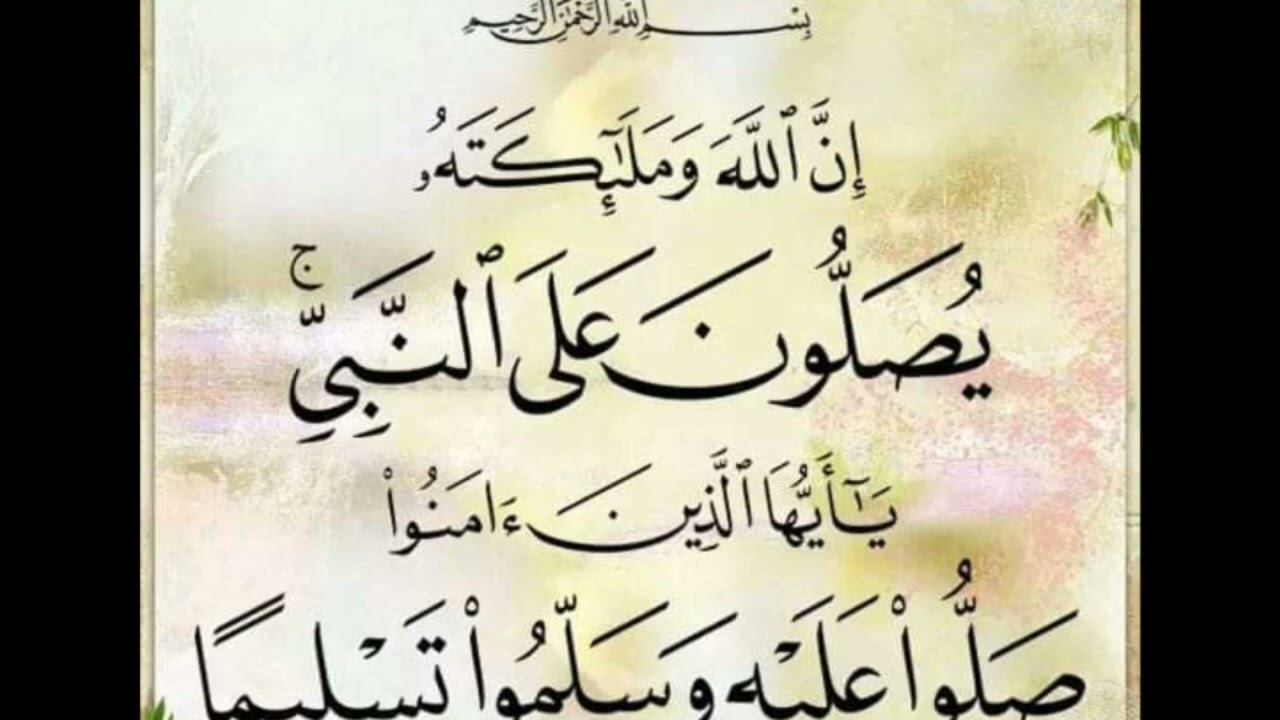 بِسْمِ اللَّهِ الرَّحْمَٰنِ الرَّحِيمِ
إِنَّ ٱللَّهَ وَمَلَـٰٓئِكَتَهُۥ
يُصَلُّونَ عَلَى ٱلنَّبِىِّ ۚ
يَـٰٓأَيُّهَا ٱلَّذِينَ ءَامَنُوا۟
صَلُّوا۟ عَلَيْهِ وَسَلِّمُوا۟ تَسْلِيمًا